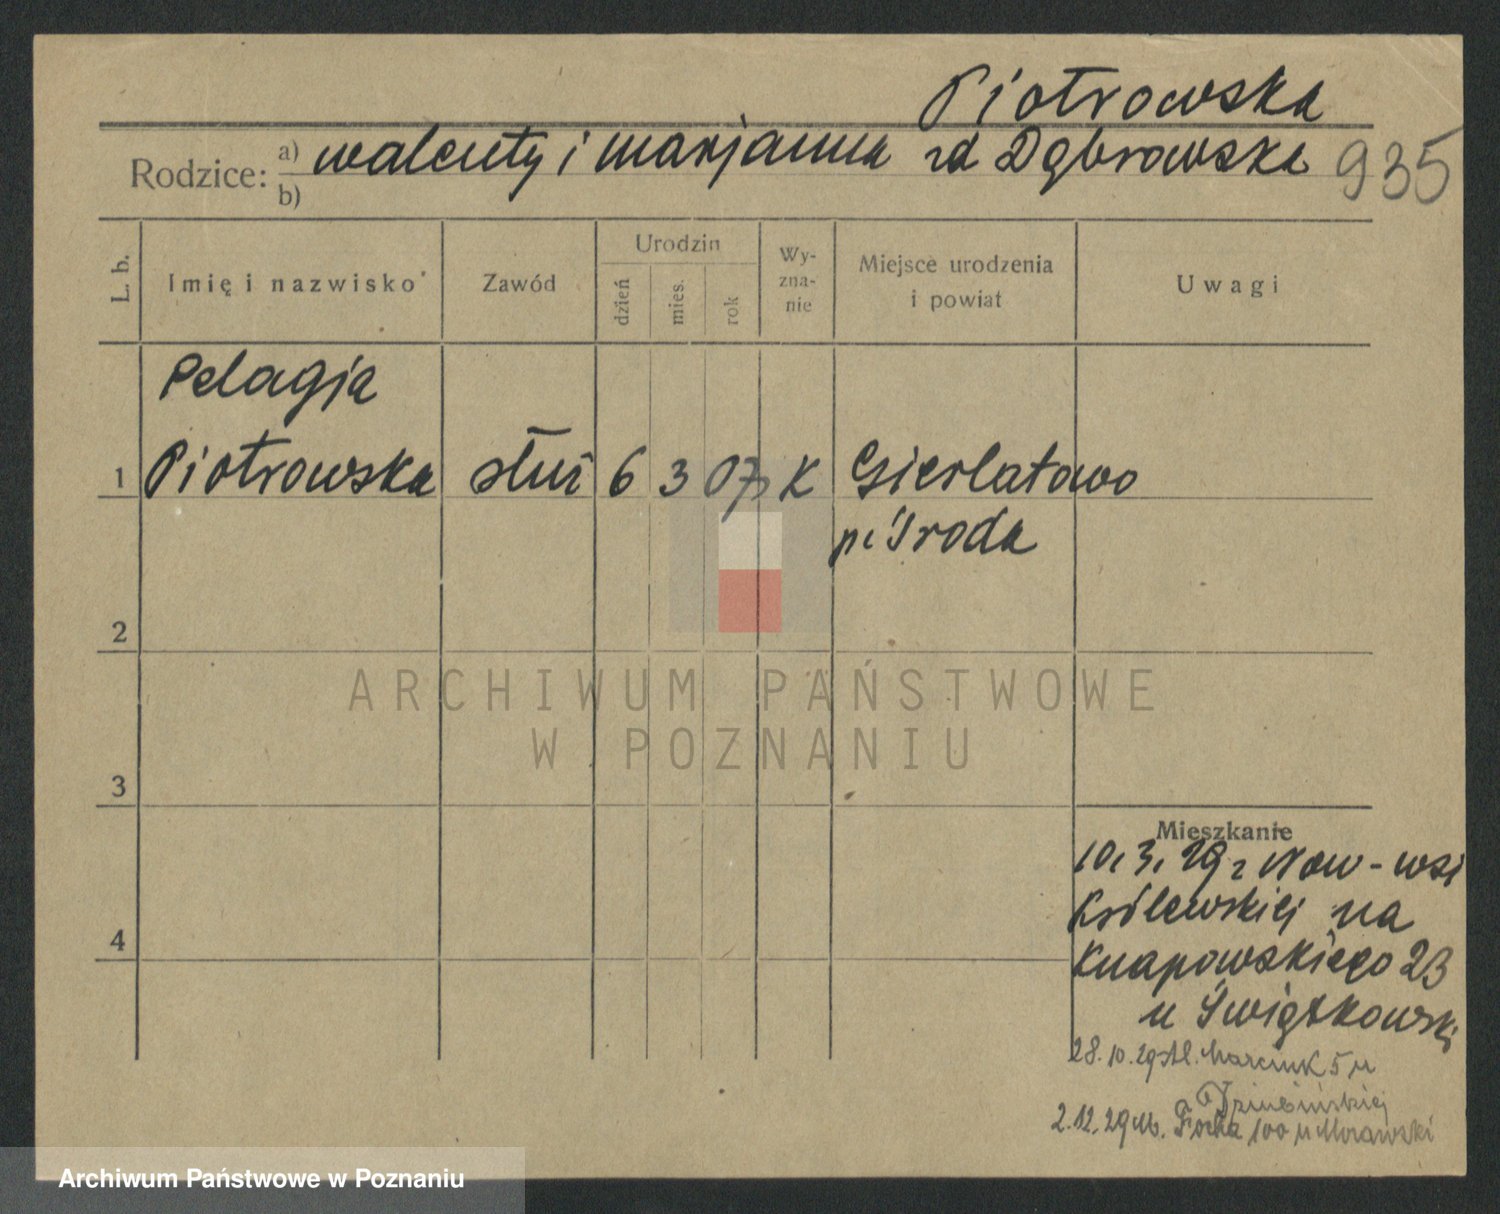 Piotrowska
Rodzice: a) walenty i marjanna zd Dąbrowska 935
b)
L. b.
Imię i nazwisko
Zawód
Urodzin
dzień
mies.
rok
Wy-
zna-
nie
Miejsce urodzenia
i powiat
Uwagi
Pelagja
1 Piotrowska służ 6 3 07 K Gierłatowo
p. Środa
2
ARCHIWUM PAŃSTWOWE
W POZNANIU
3
Mieszkanie
10. 3. 29 z Now-wsi
Królewskiej na
Knapowskiego 23
u Świątkowski
4
28. 10. 29 Marcink 5 u
2. 12. 29 Focha 100 u Morawski
Archiwum Państwowe w Poznaniu